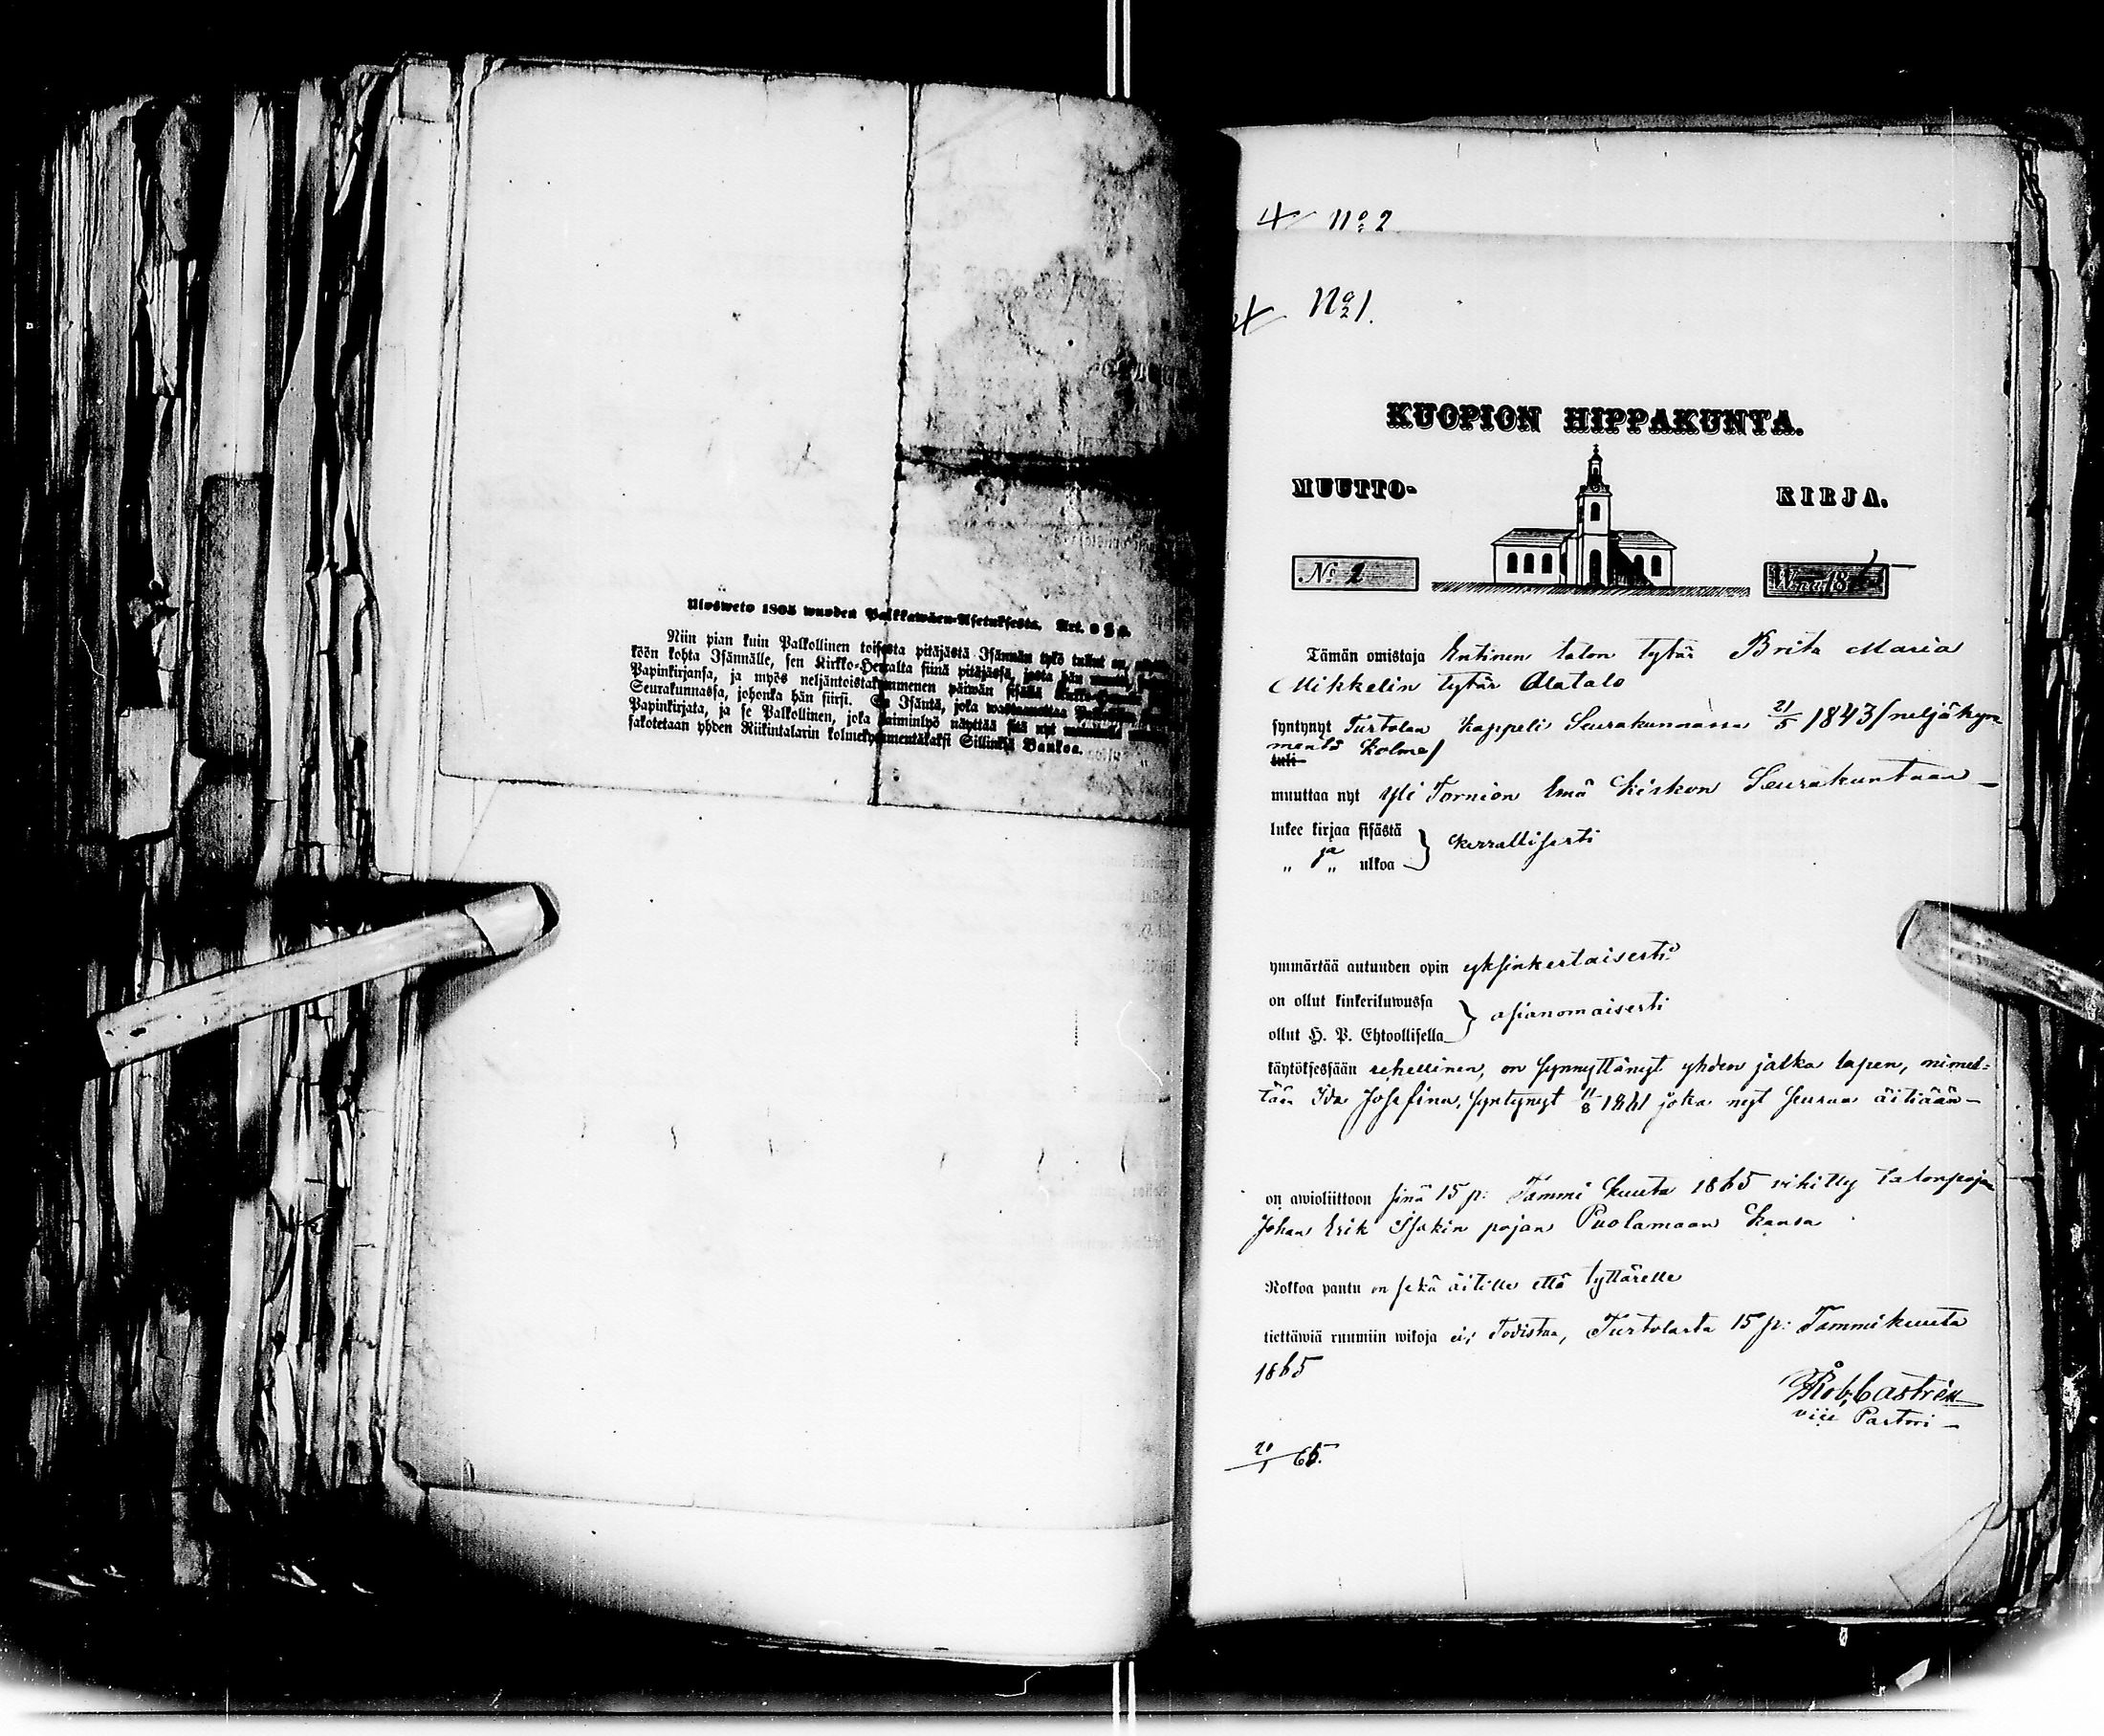 Ulosweto 1805 wuoden Palkkawäen-Asetuksesta. Art. 9 §
Niin pian kuin Palkollinen toisesta pitäjästä Isännän tykö tullut on,
köön kohta Isännälle, sen Kirkko-Herralta siinä pitäjässä, josta hän
Papinkirjansa, ja myös neljäntoistakymmenen päiwän sisällä
Seurakunnassa, johonka hän siirsi. Se Isäntä, joka
Papinkirjata, ja se Palkollinen, joka laiminlyö näyttää sitä nyt
sakotetaan yhden Riikintalarin kolmekymmentäkaksi Sillinkiä Bankoa.
N:o 2
N:o 1.
KUOPION HIPPAKUNTA.
MUUTTO- KIRJA.
No 1 Wna 18
Tämän omistaja Entinen talon tytär Brita Maria
Mikkelin tytär Alatalo
syntynyt Turtolan kappeli Seurakunnassa 21/5 1843 /neljäkym
mentä kolme/
tuli
muuttaa nyt Yli Tornion Emä kirkon Seurakuntaan
lukee kirjaa sisästä
ja } kerrallisesti
„ „ ulkoa
ymmärtää autuuden opin yksinkertaisesti
on ollut kinkeriluwussa
} asianomaisesti
ollut H. P. Ehtoollisella
käytöksessään rehellinen, on synnyttänyt yhden jalka lapen, nimel-
tän Ida Josefina, syntynyt 11/8 1861 joka nyt seuraa äitiään
on awioliittoon sinä 15 p: Tammi kuuta 1865 vihitty talonpojan
Johan Erik Isakin pojan Puolamaan kansa
Rokkoa pantu on sekä äitille että tyttärelle
tiettäwiä ruumiin wikoja ei; Todistaa, Turtolasta 15 p: Tammikuuta
1865
Rob. Castrén
vice Pastori
20/1 65.